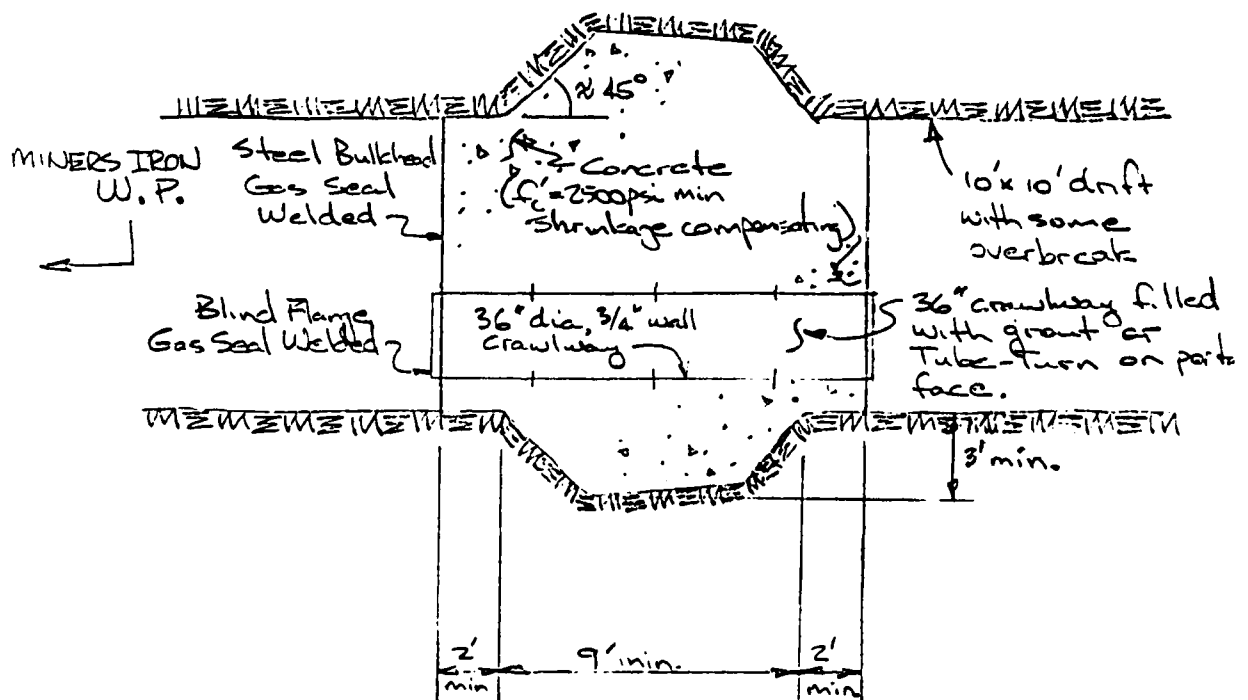 ≈ 45°
MINERS IRON
W.P.
Steel Bulkhead
Gas Seal
Welded
Concrete
(f'c=2500psi min
shrinkage compensating)
10'x 10' drift
with some
overbreak
Blind Flange
Gas Seal Welded
36" dia, 3/4" wall
crawlway
36" crawlway filled
with grout or
Tube-Turn on
face.
3' min.
2'
min
9' min.
2'
min